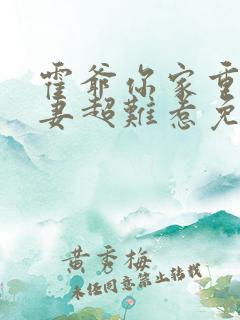 霍爷你家重
妻超难惹免
黄秀梅
未经同意禁止转载